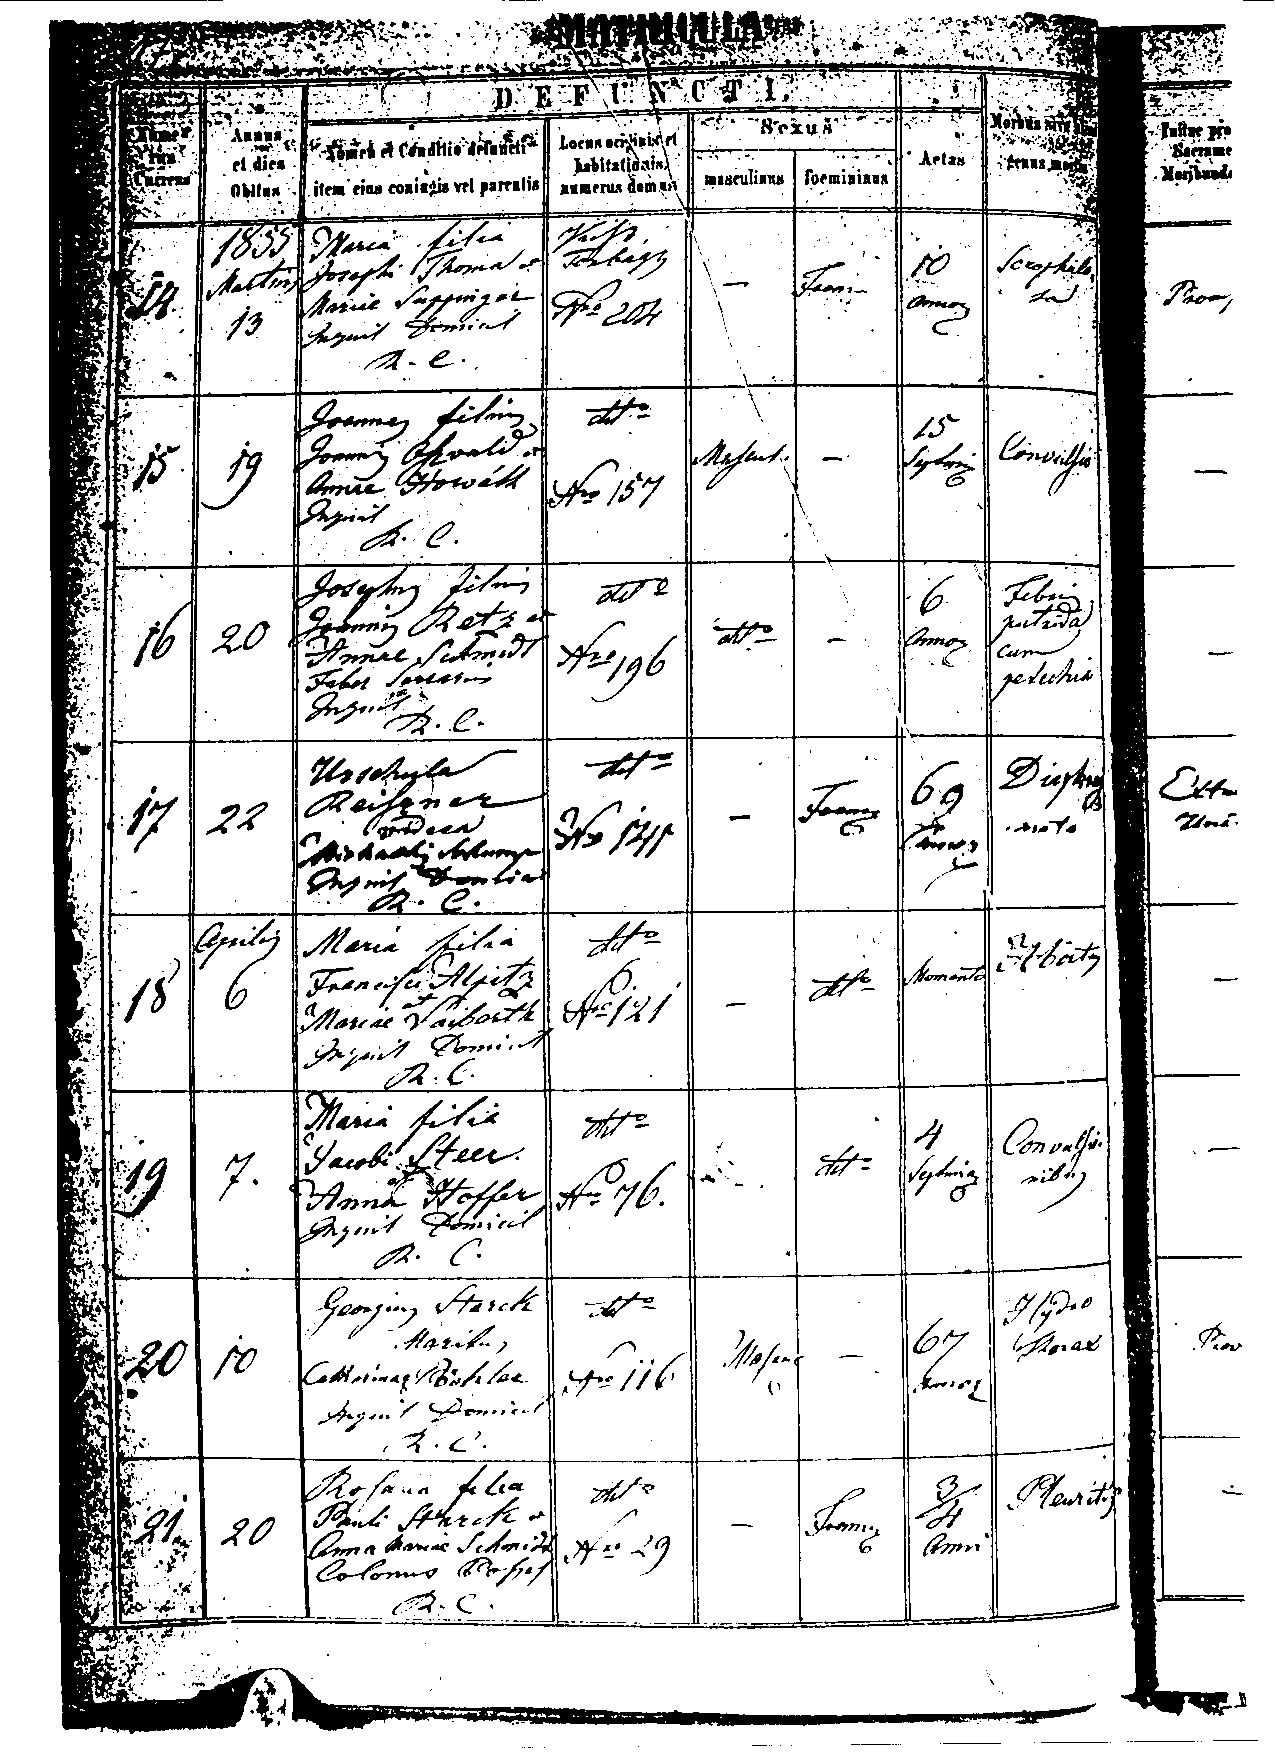 MATRICULA
DEFUNCTI.
Numerus Currens
Annus et dies Obitus
Nomen et Conditio defuncti
item eius coniugis vel parentis
Locus originis et habitationis, numerus domus
Sexus
masculinus
foemininus
Aetas
Morbus
genus mortis
14
1855
Martii
13
Maria filia
Josephi Thoma et
Mariae
Inquil Domicil
R. C.
Torbágy
Nro 204
—
Foem
10
annor
15
19
Joannes filius
Joannis Oswald et
Annae Howáth
Inquil
R. C.
detto
Nro 157
Mascul.
—
15
Septim
Convulsio
—
16
20
Josephus filius
Joannis Retz et
Annae Schmidt
Faber Serarius
Inquil
R. C.
detto
Nro 196
detto
—
6
annor
Febris
putrida
cum
petechiis
—
17
22
Urschula
Reiszner
vidua
Michaelis
Inquil Domicil
R. C.
detto
Nro
—
Foem
69
annor
18
Aprilis
6
Maria filia
Francisci Alpitz
et
Mariae Saiborth
Inquil Domicil
R. C.
detto
Nro 121
—
detto
Momento
Abort
—
19
7.
Maria filia
Jacobi Steer
et
Anna Hoffer
Inquil Domicil
R. C.
detto
Nro 76.
—
detto
4
Septim
Convulsio-
nibus
—
20
10
Georgius Starck
Maritus
Catharinae Böhler
Inquil Domicil
R. C.
detto
Nro 116
Masc
—
67
annor
Hydro
thorax
21.
20
Rosana filia
Pauli Starck et
Anna Mariae Schmidt
Colonus
R. C.
detto
Nro 29
—
Foem
3/4
Anni
Pleuritis